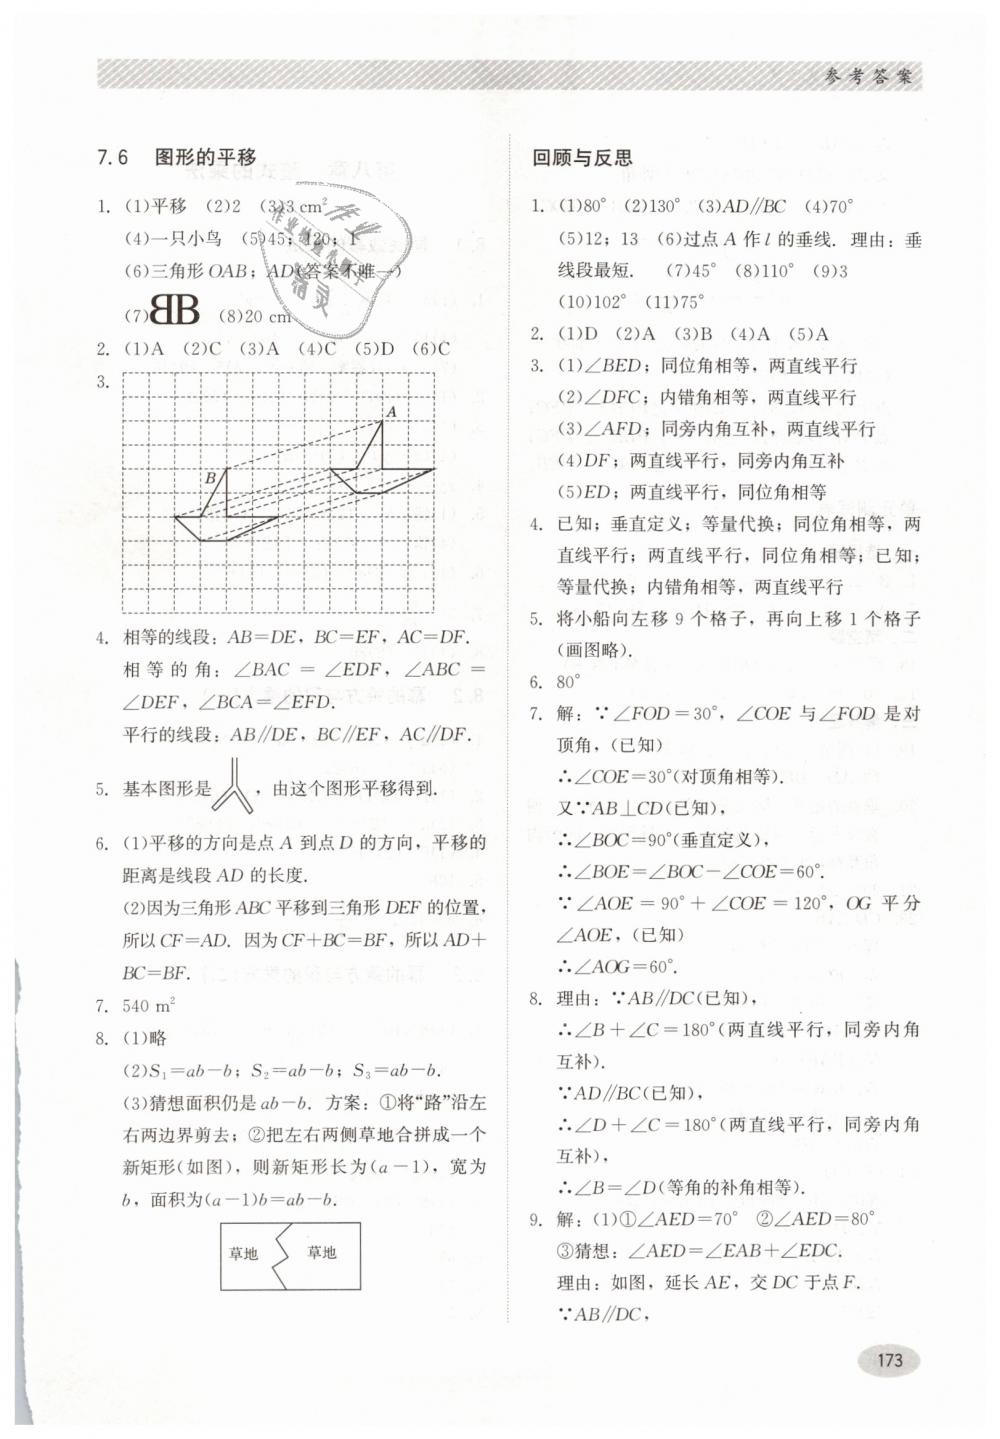 参考答案
7.6 图形的平移
1. (1)平移 (2)2 (3)3 cm²
(4)一只小鸟 (5)45;120;1
(6)三角形OAB;AD(答案不唯一)
(7) (8)20 cm
2. (1)A (2)C (3)A (4)C (5)D (6)C
3.
A
B
4. 相等的线段:AB=DE,BC=EF,AC=DF.
相等的角:∠BAC=∠EDF,∠ABC=
∠DEF,∠BCA=∠EFD.
平行的线段:AB//DE,BC//EF,AC//DF.
5. 基本图形是 ,由这个图形平移得到.
6. (1)平移的方向是点A到点D的方向,平移的
距离是线段AD的长度.
(2)因为三角形ABC平移到三角形DEF的位置,
所以CF=AD. 因为CF+BC=BF,所以AD+
BC=BF.
7. 540 m²
8. (1)略
(2)S₁=ab-b;S₂=ab-b;S₃=ab-b.
(3)猜想面积仍是ab-b. 方案:①将“路”沿左
右两边界剪去;②把左右两侧草地合拼成一个
新矩形(如图),则新矩形长为(a-1),宽为
b,面积为(a-1)b=ab-b.
草地 草地
回顾与反思
1. (1)80° (2)130° (3)AD//BC (4)70°
(5)12;13 (6)过点A作l的垂线. 理由:垂
线段最短. (7)45° (8)110° (9)3
(10)102° (11)75°
2. (1)D (2)A (3)B (4)A (5)A
3. (1)∠BED;同位角相等,两直线平行
(2)∠DFC;内错角相等,两直线平行
(3)∠AFD;同旁内角互补,两直线平行
(4)DF;两直线平行,同旁内角互补
(5)ED;两直线平行,同位角相等
4. 已知;垂直定义;等量代换;同位角相等,两
直线平行;两直线平行,同位角相等;已知;
等量代换;内错角相等,两直线平行
5. 将小船向左移9个格子,再向上移1个格子
(画图略).
6. 80°
7. 解:∵∠FOD=30°,∠COE与∠FOD是对
顶角,(已知)
∴∠COE=30°(对顶角相等).
又∵AB⊥CD(已知),
∴∠BOC=90°(垂直定义),
∴∠BOE=∠BOC-∠COE=60°.
∵∠AOE=90°+∠COE=120°,OG平分
∠AOE,(已知)
∴∠AOG=60°.
8. 理由:∵AB//DC(已知),
∴∠B+∠C=180°(两直线平行,同旁内角
互补).
∵AD//BC(已知),
∴∠D+∠C=180°(两直线平行,同旁内角
互补),
∴∠B=∠D(等角的补角相等).
9. 解:(1)①∠AED=70° ②∠AED=80°
③猜想:∠AED=∠EAB+∠EDC.
理由:如图,延长AE,交DC于点F.
∵AB//DC,
173